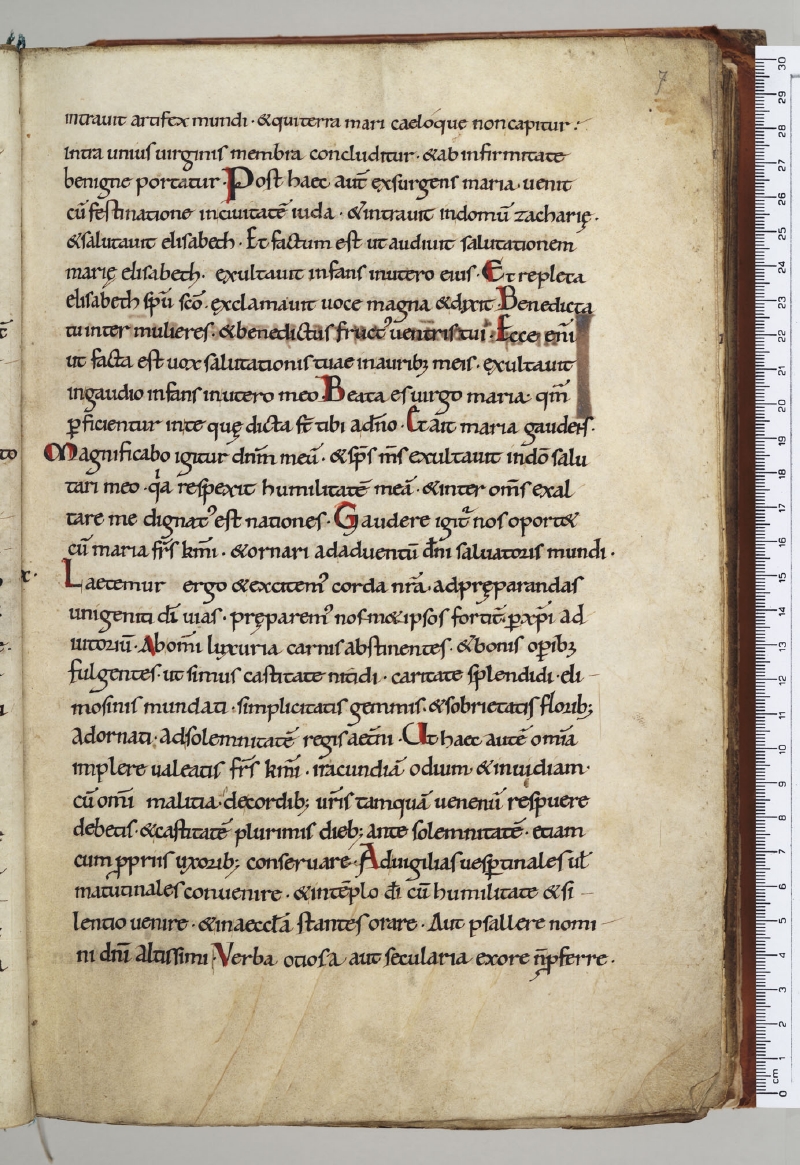 7
intrauit artifex mundi · & qui terra mari caeloque non capitur :·
intra unius uirginis membra concluditur · & ab infirmitate
benigne portatur · Post haec aut̄ exsurgens maria · uenit
cū festinatione inciuitatē iuda · & intrauit indomū zacharię ·
& salutauit elisabeth · Et factum est ut audiuit salutationem
marię elisabeth · exultauit infans inutero eius · Et repleta
elisabeth sp̄u sc̄o · exclamauit uoce magna & dixit · Benedicta
tu inter mulieres · & benedictus fruct᾽ uentris tui · Ecce eni᷄
ut facta est uox salutationis tuae inaurib; meis · exultauit
ingaudio infans inutero meo · Beata es uirgo maria · qm̄
ꝑficientur inte quę dicta st̄ tibi adn̄o · Et ait maria gaudens ·
Magnificabo igitur dn̄m meū · & sp̄s m̄s exultauit indō salu
tari meo · qia respexit humilitatē meā · & inter om̄s exal
tare me dignat᾽ est nationes · Gaudere igit᷑ nos oport&
cū maria fr̄s km̄i · & ornari adaduentū dn̄i saluatoris mundi ·
Laetemur ergo & excitem᾽ corda nr̄a · adpręparandas
unigeniti dī uias · pręparem᾽ nosm&ipsos fortit̄ · ꝑ xp̄i ad
iutoriū · Abom̄i luxuria carnis abstinentes · & bonis oꝑib;
fulgentes · ut simus castitate nitidi · caritate splendidi · eli
mosinis mundati · simplicitatis gemmis · & sobrietatis florib;
adornati · adsolemnitatē regis aet̄ni · Ut haec autē om̄ia
implere ualeatis fr̄s km̄i · iracundiā odium · & inuidiam ·
cū om̄i malitia · decordib; ur̄is tamquā uenenū respuere
debetis · & castitatē plurimis dieb; ante solemnitatē · etiam
cum ꝓpriis uxorib; conseruare · Aduigilias uesꝑtinales ul̄
matutinales conuenire · & intēplo dī cū humilitate & si
lentio uenire · & inaeccl̄a stantes orare · Aut psallere nomi
ni dn̄i altissimi · Verba otiosa aut secularia exore n̄ ꝓferre ·